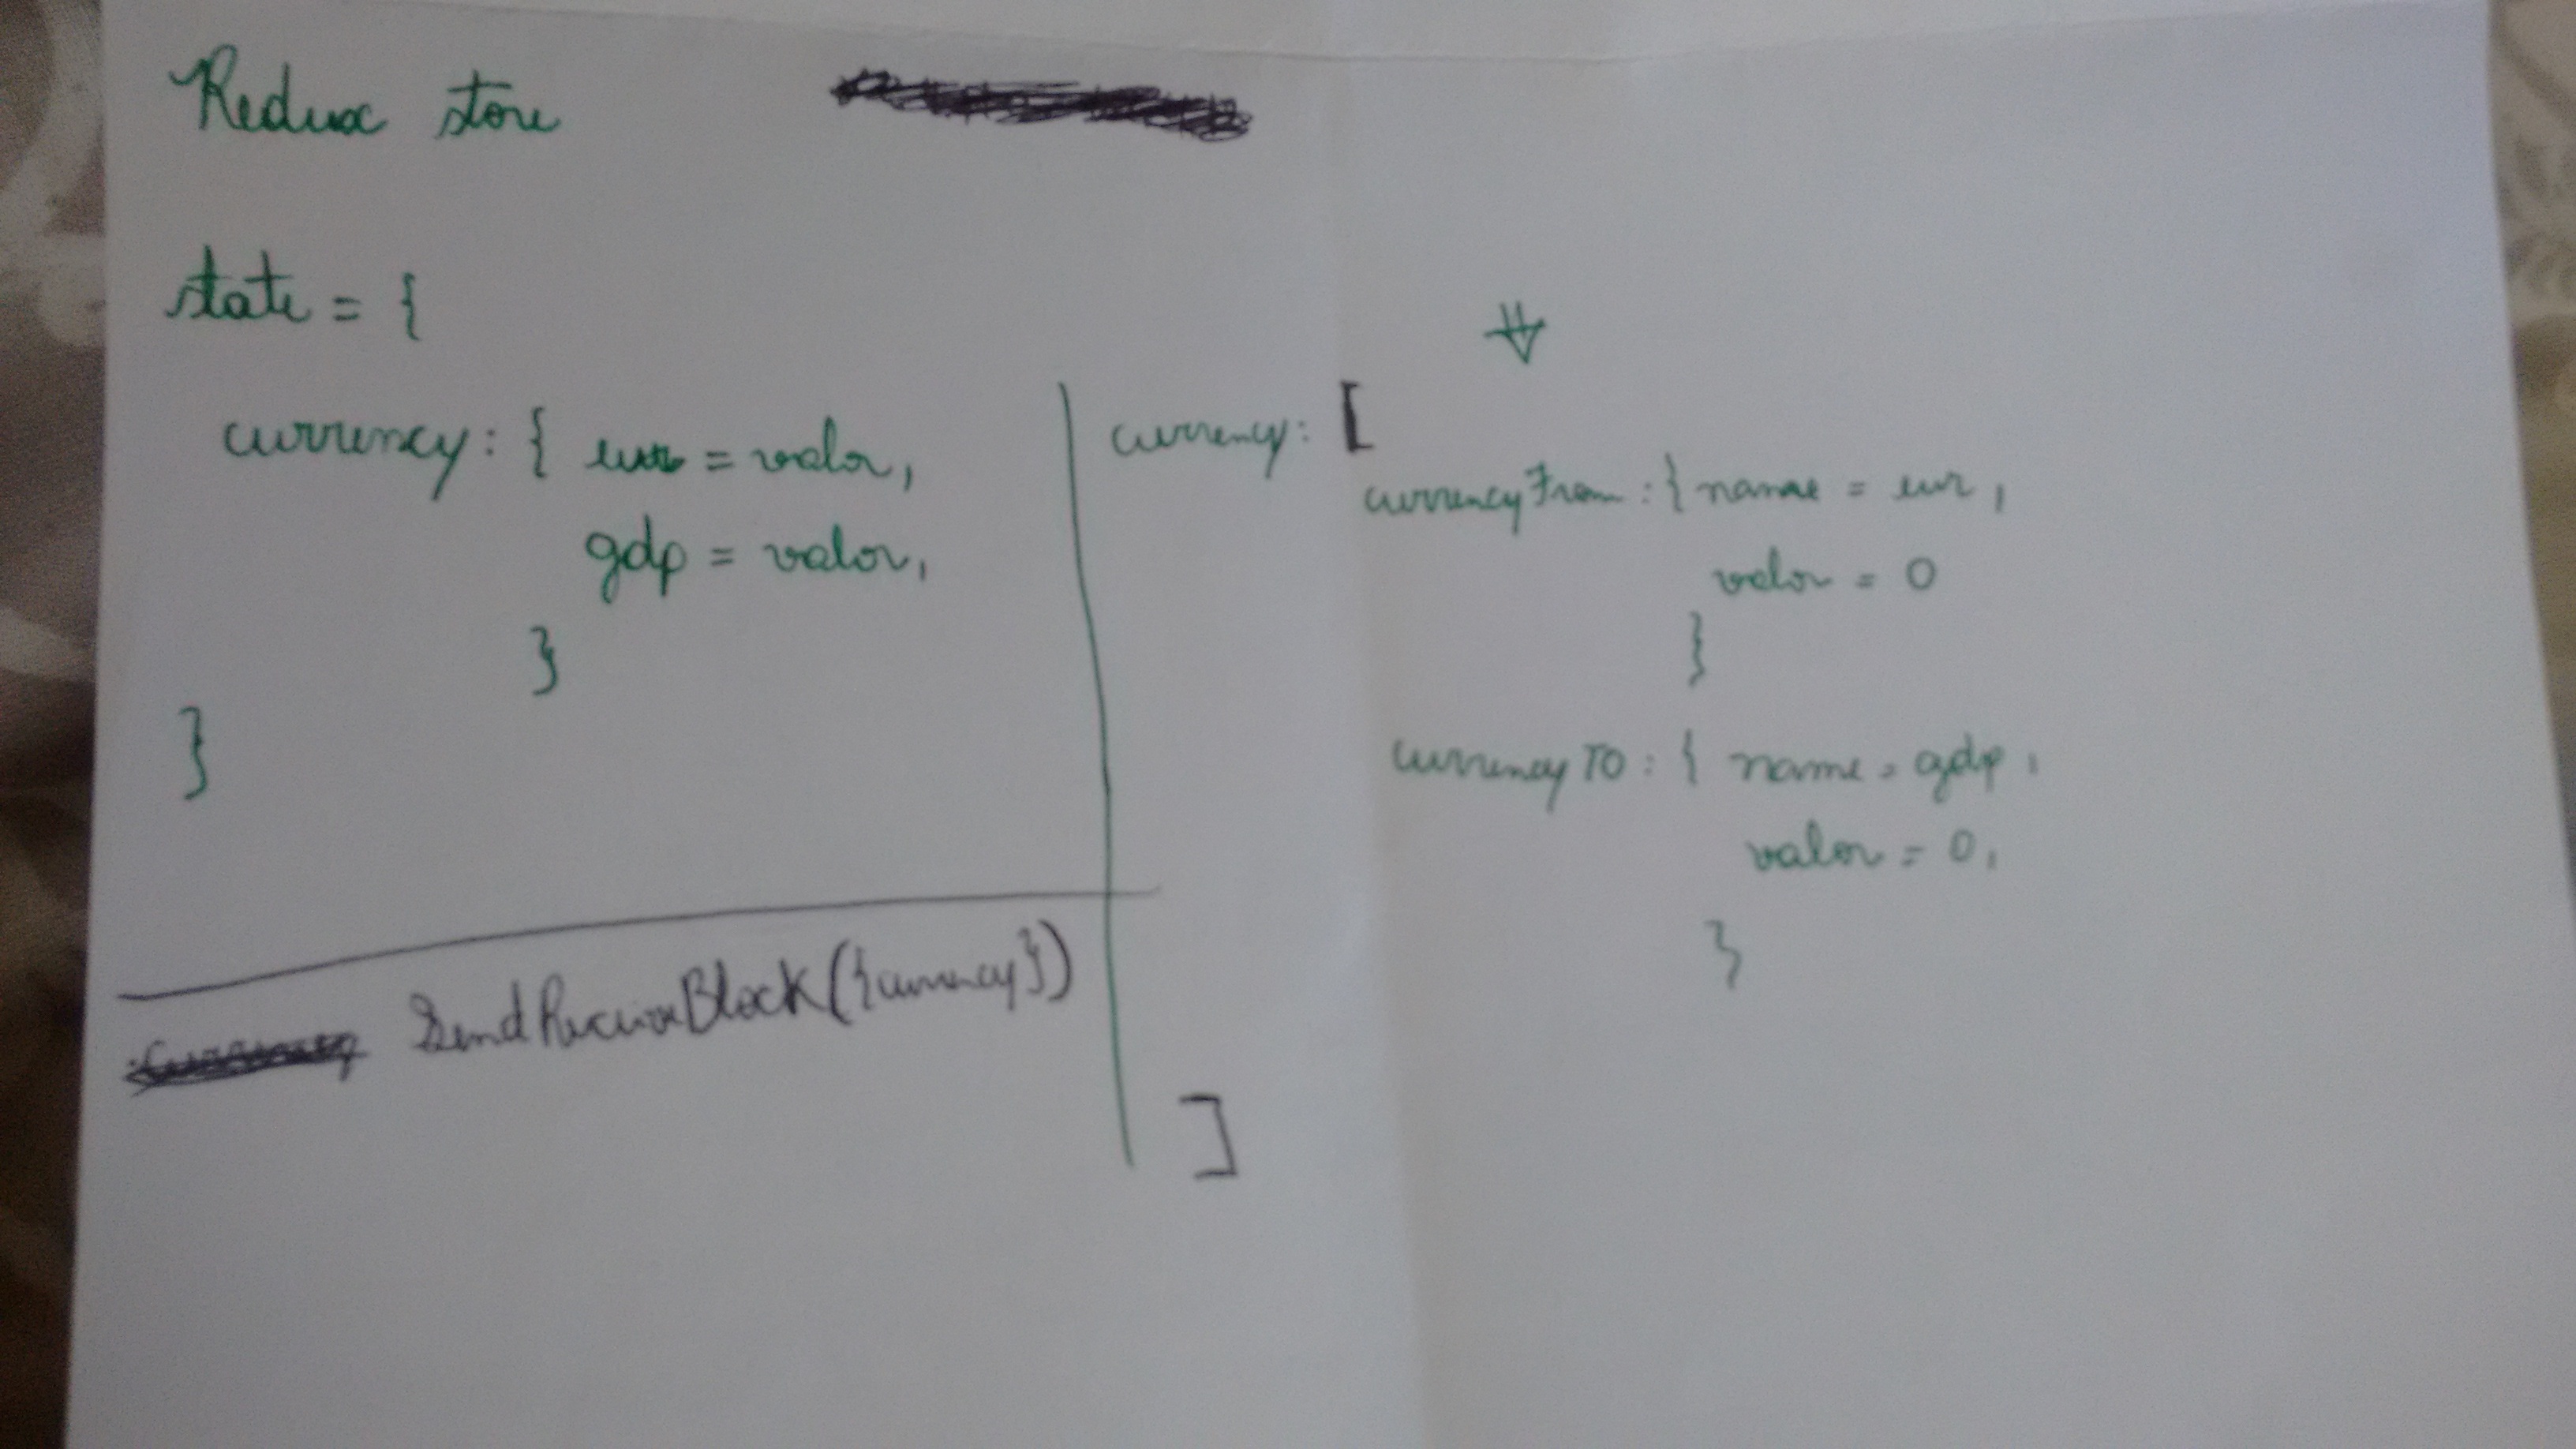 Redux store
state = {
currency: { eur = valor,
gdp = valor,
}
}
SendReceiveBlock({currency})
currency: [
currencyFrom: { name = eur,
valor = 0
}
currencyTO: { name = gdp,
valor = 0,
}
]